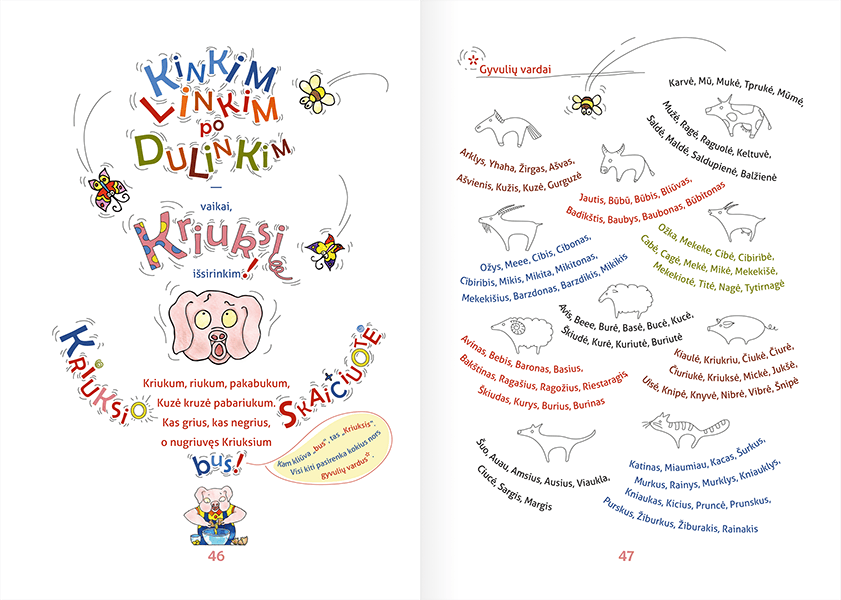 KiNKiM
LiNKiM
po
DULiNKiM
vaikai,
Kriuksį
išsirinkim!
KRIUKSIO
SKAIČIUOTĖ
Kriukum, riukum, pakabukum,
Kuzė kruzė pabariukum.
Kas grius, kas negrius,
o nugriuvęs Kriuksium
bus!
Kam kliūva „bus“, tas „Kriuksis“.
Visi kiti pasirenka kokius nors
gyvulių vardus*
46
* Gyvulių vardai
Karvė, Mū, Mukė, Tprukė, Mūmė,
Mužė, Ragė, Raguolė, Keltuvė,
Saldė, Maldė, Saldupienė, Balžienė
Arklys, Yhaha, Žirgas, Ašvas,
Ašvienis, Kužis, Kuzė, Gurguzė
Jautis, Būbū, Būbis, Bliūvas,
Badikštis, Baubys, Baubonas, Būbitonas
Ožys, Meee, Cibis, Cibonas,
Cibiribis, Mikis, Mikita, Mikitonas,
Mekekišius, Barzdonas, Barzdikis, Mikikis
Ožka, Mekeke, Cibė, Cibiribė,
Cabė, Cagė, Mekė, Mikė, Mekekišė,
Mekekiotė, Titė, Nagė, Tytirnagė
Avis, Beee, Burė, Basė, Bucė, Kucė,
Škiudė, Kurė, Kuriutė, Buriutė
Avinas, Bebis, Baronas, Basius,
Bakštinas, Ragašius, Ragožius, Riestaragis
Škiudas, Kurys, Burius, Burinas
Kiaulė, Kriukriu, Čiukė, Čiurė,
Čiuriukė, Kriuksė, Mickė, Jukšė,
Uisė, Knipė, Knyvė, Nibrė, Vibrė, Šnipė
Šuo, Auau, Amsius, Ausius, Viaukla,
Ciucė, Sargis, Margis
Katinas, Miaumiau, Kacas, Šurkus,
Murkus, Rainys, Murklys, Kniauklys,
Kniaukas, Kicius, Pruncė, Prunskus,
Purskus, Žiburkus, Žiburakis, Rainakis
47